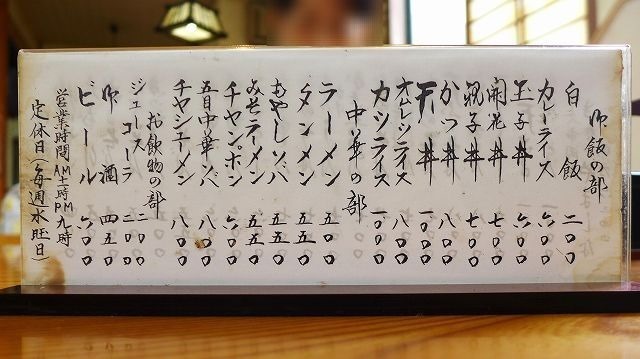 御飯の部
白飯 二〇〇
カレーライス 六〇〇
玉子丼 六〇〇
開花丼 七〇〇
親子丼 七〇〇
かつ丼 八〇〇
天丼 一〇〇〇
オムレツライス 八〇〇
カツライス 一〇〇〇
中華の部
ラーメン 五〇〇
タンメン 五五〇
もやしソバ 五五〇
みそラーメン 五五〇
チャンポン 六〇〇
五目中華ソバ 八〇〇
チャシューメン 八〇〇
お飲物の部
ジュースコーラ 二〇〇
御酒 四五〇
ビール 六〇〇
営業時間 AM十一時 PM九時
定休日(毎週水旺日)